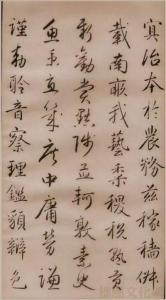 冥治本於農務茲稼穡俶
載南畝我藝黍稷稅熟貢
新勸賞黜陟孟軻敦素史
魚秉直幾庶中庸勞謙
謹勅聆音察理鑑貌辨色